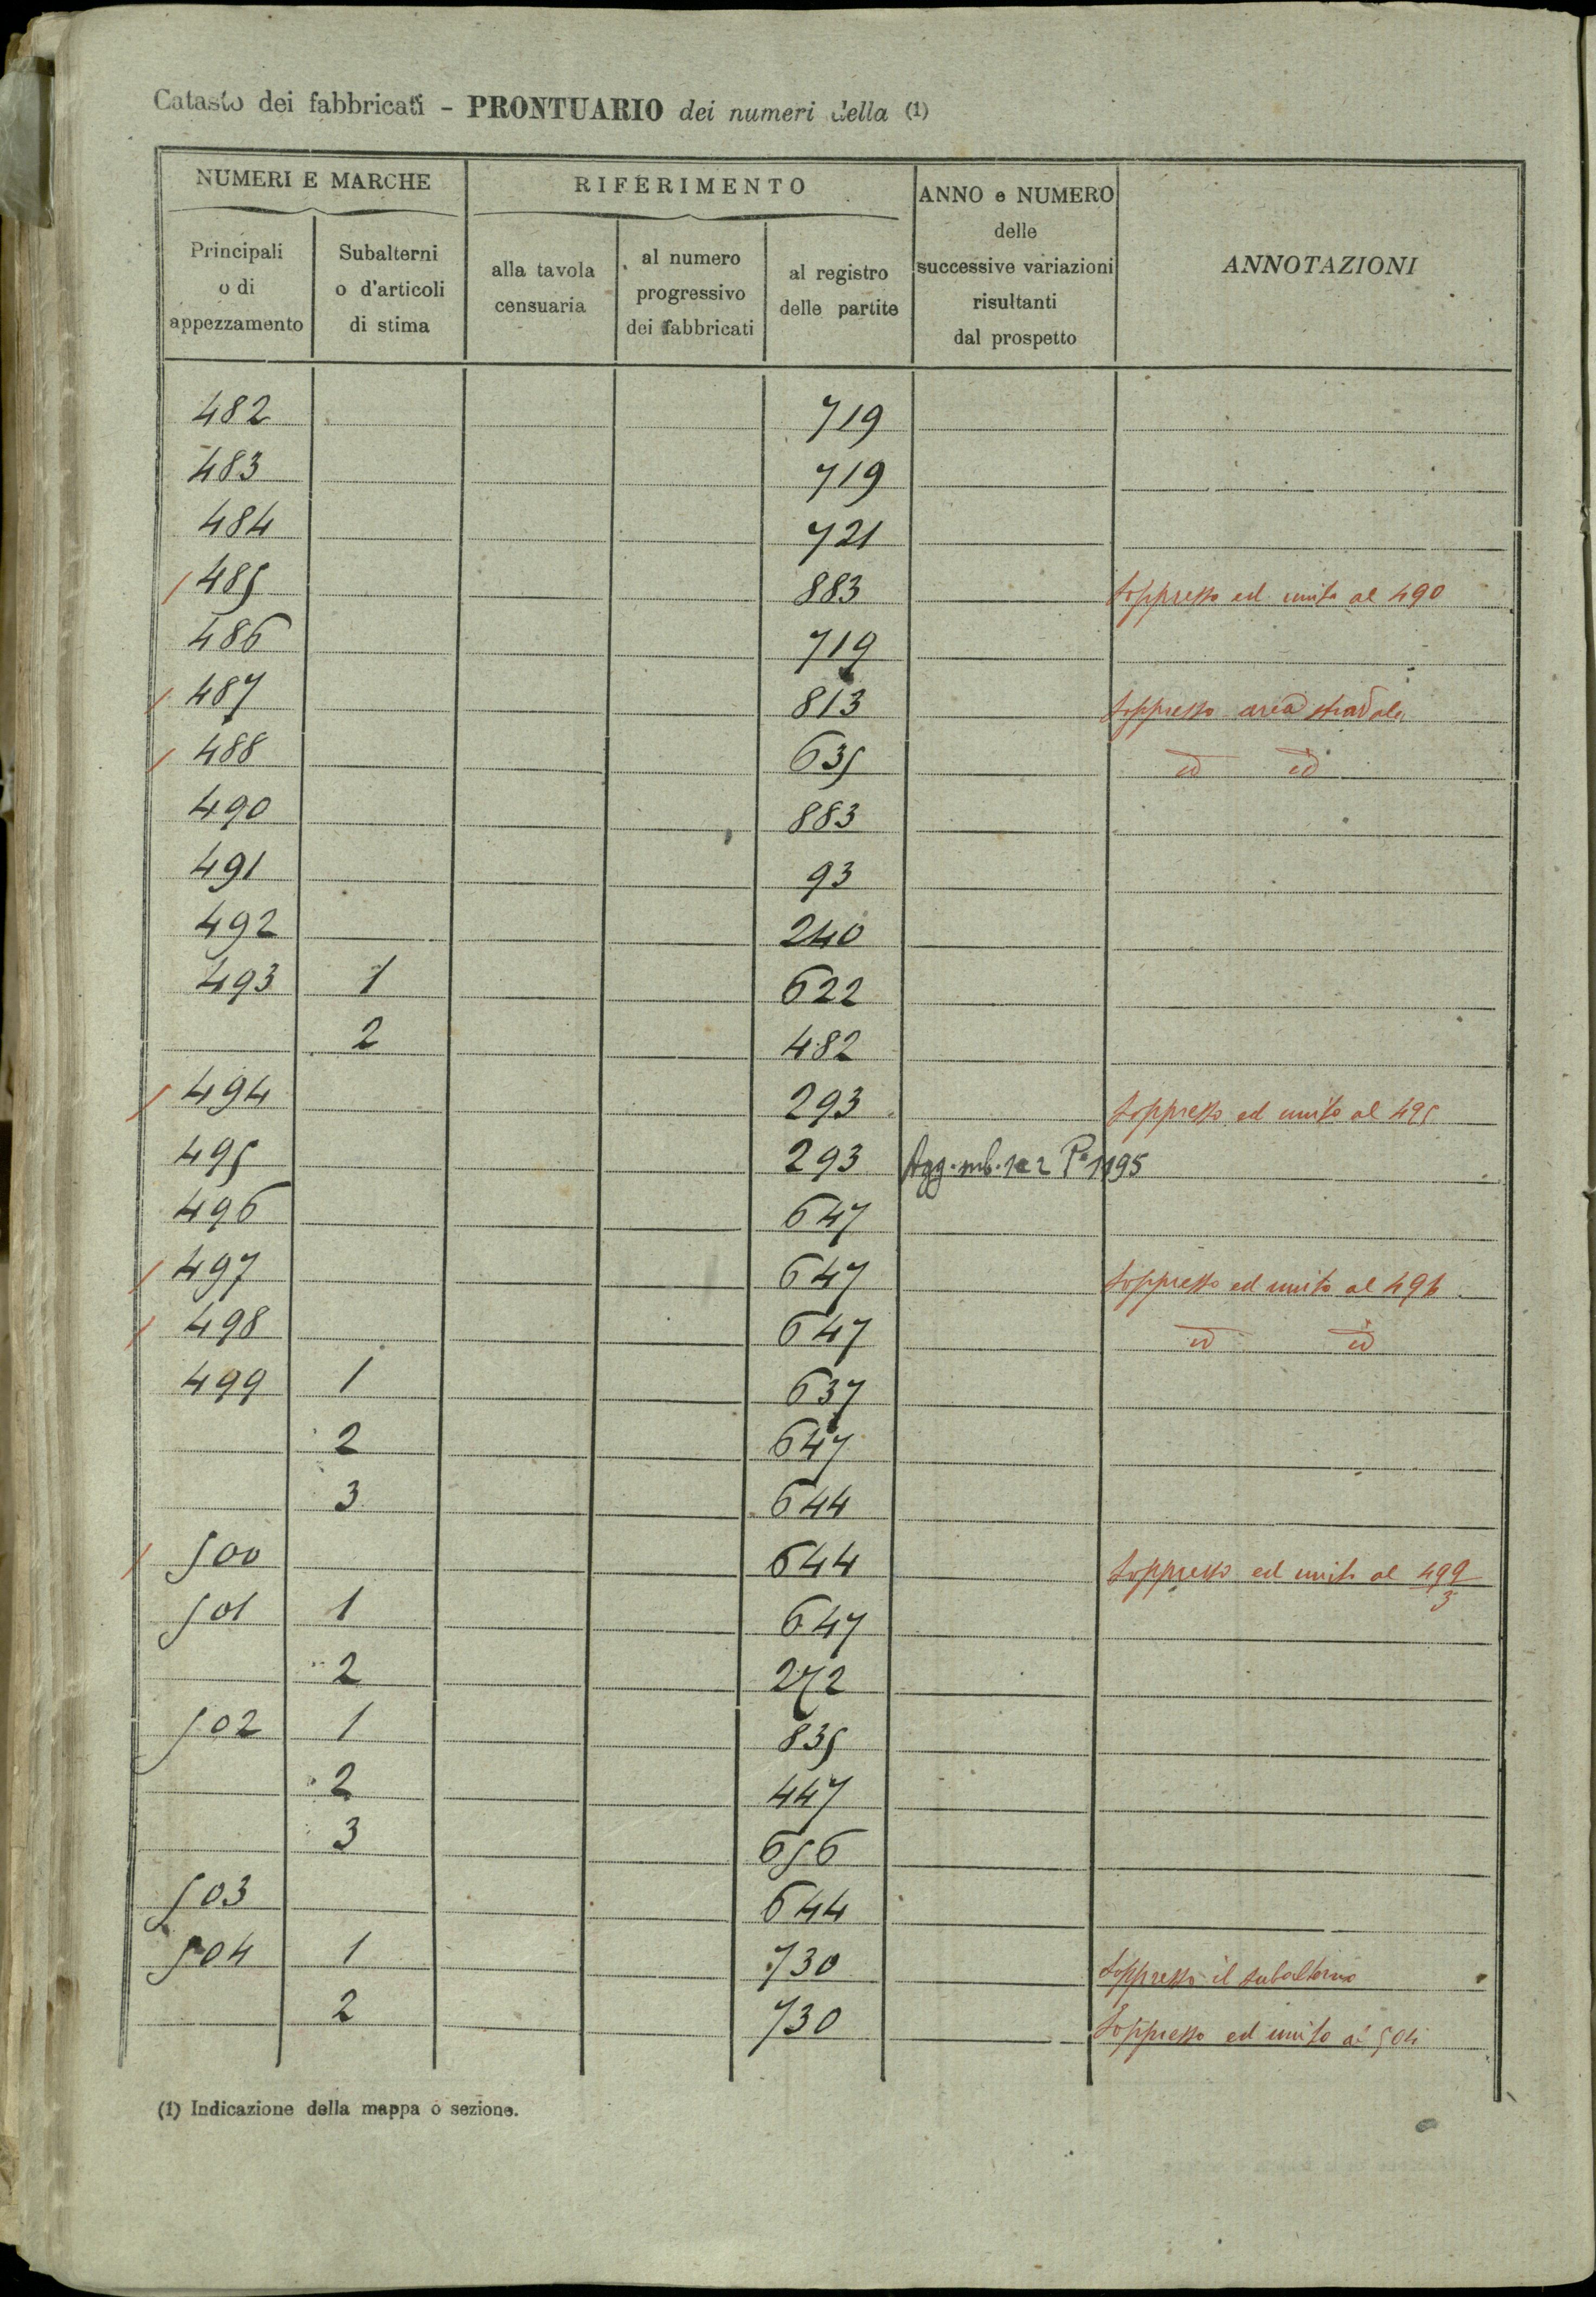 Catasto dei fabbricati - PRONTUARIO dei numeri della (1)
NUMERI E MARCHE RIFERIMENTO ANNO e NUMERO delle successive variazioni risultanti dal prospetto ANNOTAZIONI
Principali o di appezzamento Subalterni o d'articoli di stima alla tavola censuaria al numero progressivo dei fabbricati al registro delle partite
482 719
483 719
484 721
/ 485 883 Soppresso ed unito al 490
486 719
/ 487 813 Soppresso area stradale
/ 488 635 id id
490 883
491 93
492 240
493 1 622
2 482
/ 494 293 Soppresso ed unito al 495
495 293 Agg. sub. 1 e 2 Pª 1195
496 647
/ 497 647 Soppresso ed unito al 496
/ 498 647 id id
499 1 637
2 647
3 644
/ 500 644 Soppresso ed unito al 499/3
501 1 647
2 272
502 1 835
2 447
3 656
503 644
504 1 730 Soppresso il subalterno
2 730 Soppresso ed unito al 504
(1) Indicazione della mappa o sezione.